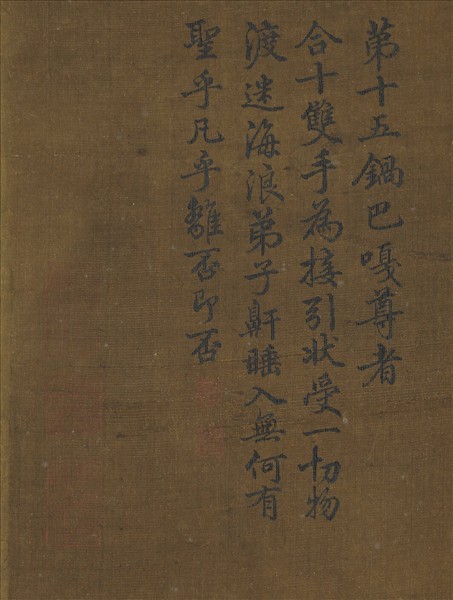 第十五鍋巴嘎尊者
合十雙手為接引狀受一切物
渡迷海浪弟子鼾睡入無何有
聖乎凡乎離否即否